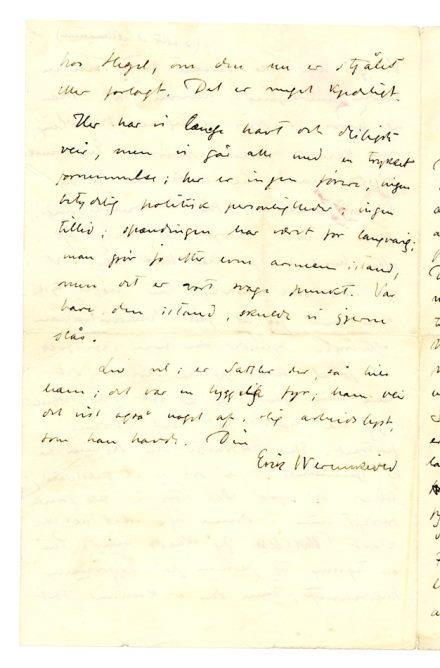 hos Hegel, om den nu er stjålet
eller forlagt. Det er meget kjedeligt.
Her har vi længe havt det deiligste
veir, men vi går alle med en trykket
fornemmelse; her er ingen førere, ingen
betydelig politisk personligheder, ingen
tillid; spændingen har været for langvarig;
man gør jo efter evne armeen istand,
men det er vort svage punkt. Var
bare den istand, skulde vi gjerne
slås.
Lev vel; er Sattler der, så hils
ham; det var en hyggelig fyr; han vei
det vist også noget af, slig arbeidslyst,
som han havde. Din
Erik Werenskiold